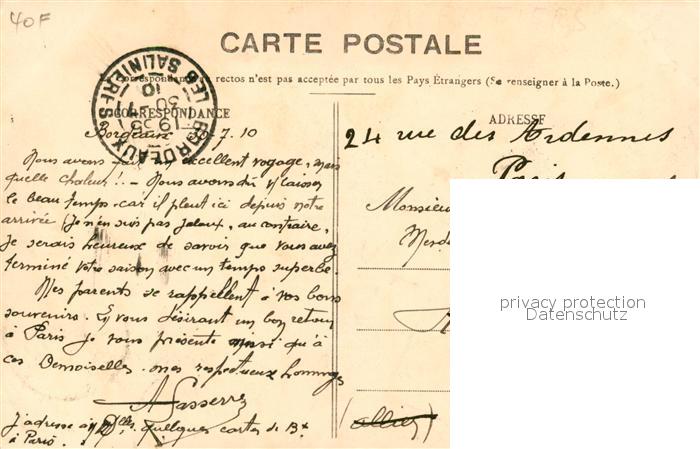 40F
CARTE POSTALE
La correspondance au rectos n'est pas acceptée par tous les Pays Étrangers (Se renseigner à la Poste.)
CORRESPONDANCE
ADRESSE
BORDEAUX LES SALINIÈRES
Bordeaux 30-7.10
Nous avons fait un excellent voyage, mais
quelle chaleur!. - Nous avons dû laisser
le beau temps. car il pleut ici depuis notre
arrivée (Je n'en suis pas jaloux, au contraire,
je serais heureux de savoir que vous avez
terminé votre saison avec un temps superbe.
Mes parents se rappellent à vos bons
souvenirs. Et vous désirant un bon retour
à Paris je vous présente ainsi qu'à
ces Demoiselles mes respectueux hommages
J'adresse à Mlles. quelques cartes de Bx
à Paris.
24 rue des Ardennes
Paris
Monsieur
Mesd
(Allier)
privacy protection
Datenschutz